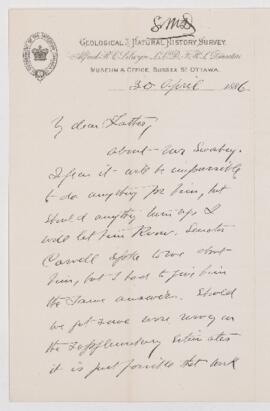 GEOLOGICAL & NATURAL HISTORY SURVEY.
Alfred R. C. Selwyn, L.L.D., F.R.S., Director.
MUSEUM & OFFICE, SUSSEX ST. OTTAWA.
30 April 1886
My dear Father,
about Mr
I fear it will be impossible
to do anything for him, but
should anything turn up I
will let him know. Senator
Carvell spoke to me about
him, but I had to give him
the same answer. Should
we get some more money on
the supplementary estimates
it is just possible that work